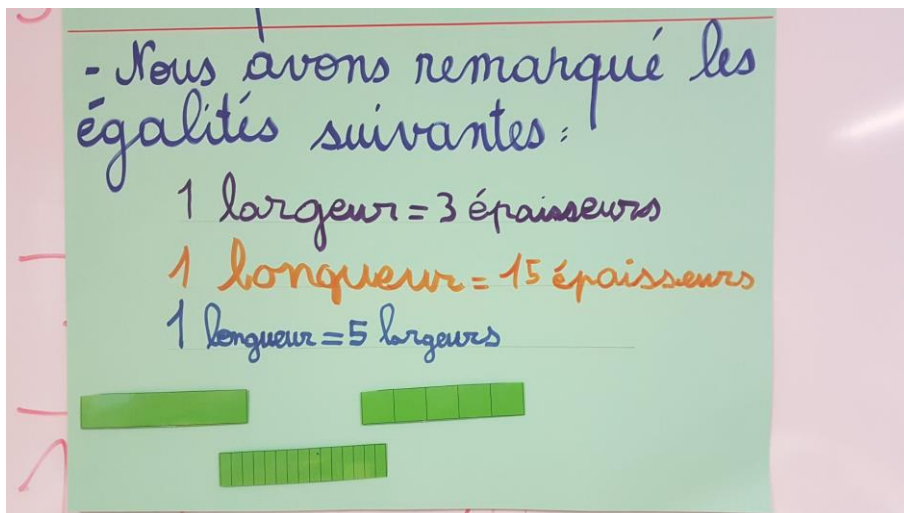 - Nous avons remarqué les
égalités suivantes :
1 largeur = 3 épaisseurs
1 longueur = 15 épaisseurs
1 longueur = 5 largeurs